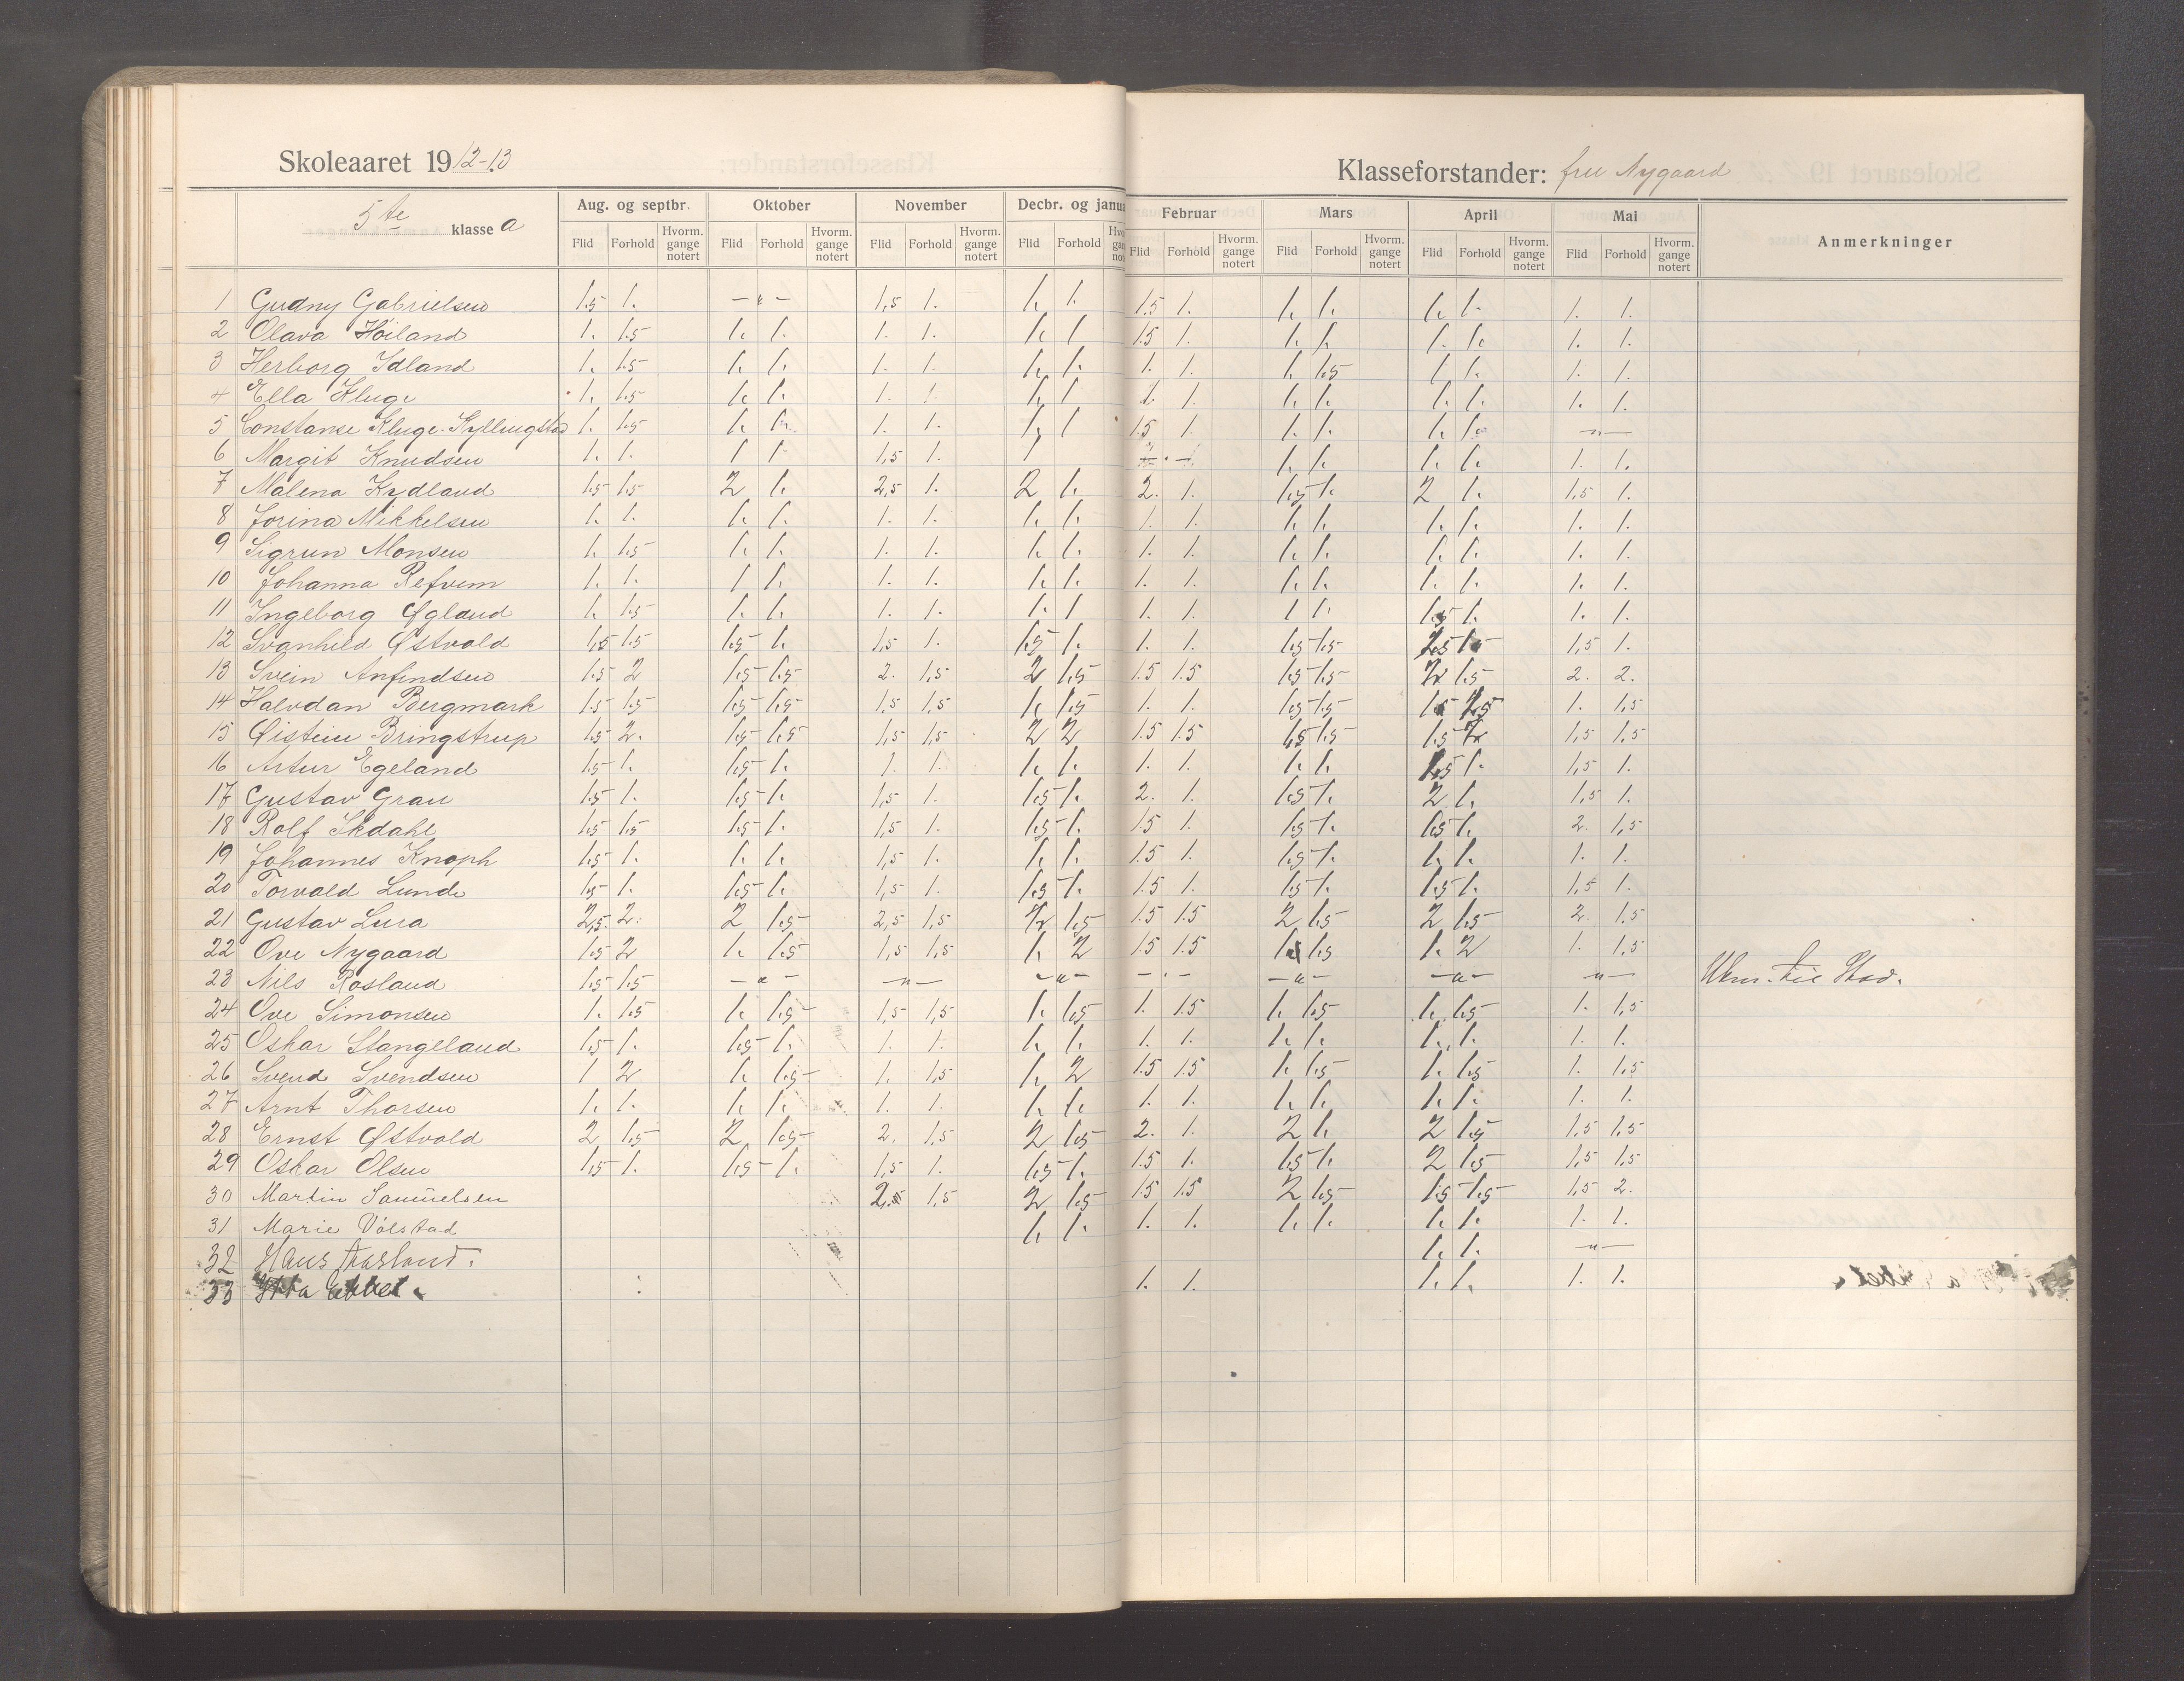 Skoleaaret 1912-13
Klasseforstander: fru Nygaard
5te klasse a
Aug. og septbr. Oktober November Decbr. og janua Februar Mars April Mai Anmerkninger
Flid Forhold Hvorm. gange notert Flid Forhold Hvorm. gange notert Flid Forhold Hvorm. gange notert Flid Forhold Flid Forhold Hvorm. gange notert Flid Forhold Hvorm. gange notert Flid Forhold Hvorm. gange notert Flid Forhold Hvorm. gange notert
1 Gudny Gabrielsen 1.5 1. -"- 1,5 1. 1. 1. 1.5 1. 1. 1. 1. 1. 1. 1.
2 Olava Höiland 1. 1.5 1. 1. 1. 1. 1. 1 1.5 1. 1. 1. 1. 1. 1. 1.
3 Herborg Idland 1. 1.5 1. 1. 1. 1. 1. 1. 1. 1. 1. 1.5 1. 1. 1. 1.
4 Ella Kluge 1. 1.5 1. 1. 1. 1. 1. 1 1. 1. 1. 1. 1. 1. 1. 1.
5 Constanse Kluge-Kyllingstad 1. 1.5 1. 1. 1. 1. 1. 1 1.5 1. 1. 1. 1. 1. -"-
6 Margit Knudsen 1. 1. 1 1 1,5 1. 1 1. 1. 1. 1. 1. 1.
7 Malena Kydland 1.5 1.5 2 1. 2,5 1. 2 1. 2. 1. 1.5 1. 2 1. 1,5 1.
8 Jorina Mikkelsen 1. 1. 1. 1. 1. 1. 1. 1. 1. 1. 1. 1. 1. 1. 1. 1.
9 Sigrun Monsen 1. 1.5 1. 1. 1. 1. 1. 1. 1. 1. 1. 1. 1. 1. 1. 1.
10 Johanna Refvem 1. 1. 1 1. 1. 1. 1. 1. 1. 1. 1. 1. 1. 1. 1. 1.
11 Ingeborg Øgland 1. 1.5 1. 1. 1. 1. 1. 1 1. 1. 1 1. 1.5 1. 1. 1.
12 Svanhild Østvold 1.5 1.5 1.5 1. 1,5 1. 1.5 1. 1. 1. 1.5 1.5 1,5 1.
13 Svein Anfindsen 1.5 2 1.5 1.5 2. 1,5 2 1.5 1.5 1.5 1.5 1.5 1.5 2. 2.
14 Halvdan Bergmark 1.5 1.5 1.5 1.5 1,5 1,5 1. 1.5 1. 1. 1.5 1.5 1. 1,5
15 Øistein Bringstrup 1.5 2. 1.5 1.5 1,5 1,5 2 2 1.5 1.5 1.5 1.5 1.5 1,5 1,5
16 Artur Egeland 1.5 1. 1.5 1. 1. 1. 1. 1. 1. 1. 1. 1. 1.5 1. 1,5 1.
17 Gustav Grau 1.5 1. 1.5 1. 1,5 1. 1.5 1. 2. 1. 1.5 1. 2 1. 1,5 1.
18 Rolf Ikdahl 1.5 1.5 1.5 1. 1,5 1. 1.5 1. 1.5 1. 1.5 1. 1.5 1. 2. 1,5
19 Johannes Knoph 1.5 1. 1. 1. 1,5 1. 1. 1. 1.5 1. 1.5 1. 1. 1. 1. 1.
20 Torvald Lunde 1.5 1. 1.5 1. 1,5 1. 1.5 1. 1.5 1. 1.5 1. 1.5 1. 1,5 1.
21 Gustav Lura 2,5. 2. 2 1.5 2,5 1,5 1.5 1.5 1.5 2 1.5 2 1.5 2. 1.5
22 Ove Nygaard 1.5 2 1. 1.5 1,5 1,5 1. 2 1.5 1.5 1.5 1. 2 1. 1,5
23 Nils Rosland 1.5 1.5 -"- -"- -"- -"- -"- -"- -"-
24 Ove Simonsen 1. 1.5 1. 1.5 1,5 1,5 1. 1.5 1. 1.5 1. 1.5 1. 1.5 1. 1,5
25 Oskar Stangeland 1.5 1. 1.5 1. 1. 1. 1. 1. 1. 1. 1. 1. 1. 1. 1. 1.
26 Svend Svendsen 1 2 1. 1.5 1. 1,5 1. 2 1.5 1.5 1. 1.5 1. 1.5 1. 1.5
27 Arnt Thorsen 1. 1. 1. 1. 1. 1. 1. 1. 1. 1. 1. 1. 1. 1. 1. 1.
28 Ernst Østvold 2 1.5 2 1.5 2. 1,5 2 1.5 2. 1. 2 1. 2 1.5 1,5 1,5
29 Oskar Olsen 1.5 1. 1.5 1. 1,5 1. 1.5 1. 1.5 1. 1.5 1. 2 1.5 1,5 1,5
30 Martin Samuelsen 2.5 1,5 2 1.5 1.5 1.5 2 1.5 1.5 1.5 1,5 2.
31 Marie Vólstad 1. 1. 1. 1. 1. 1. 1. 1. 1. 1.
32 Hans 1. 1. -"-
33 1. 1. 1. 1. 1. 1.